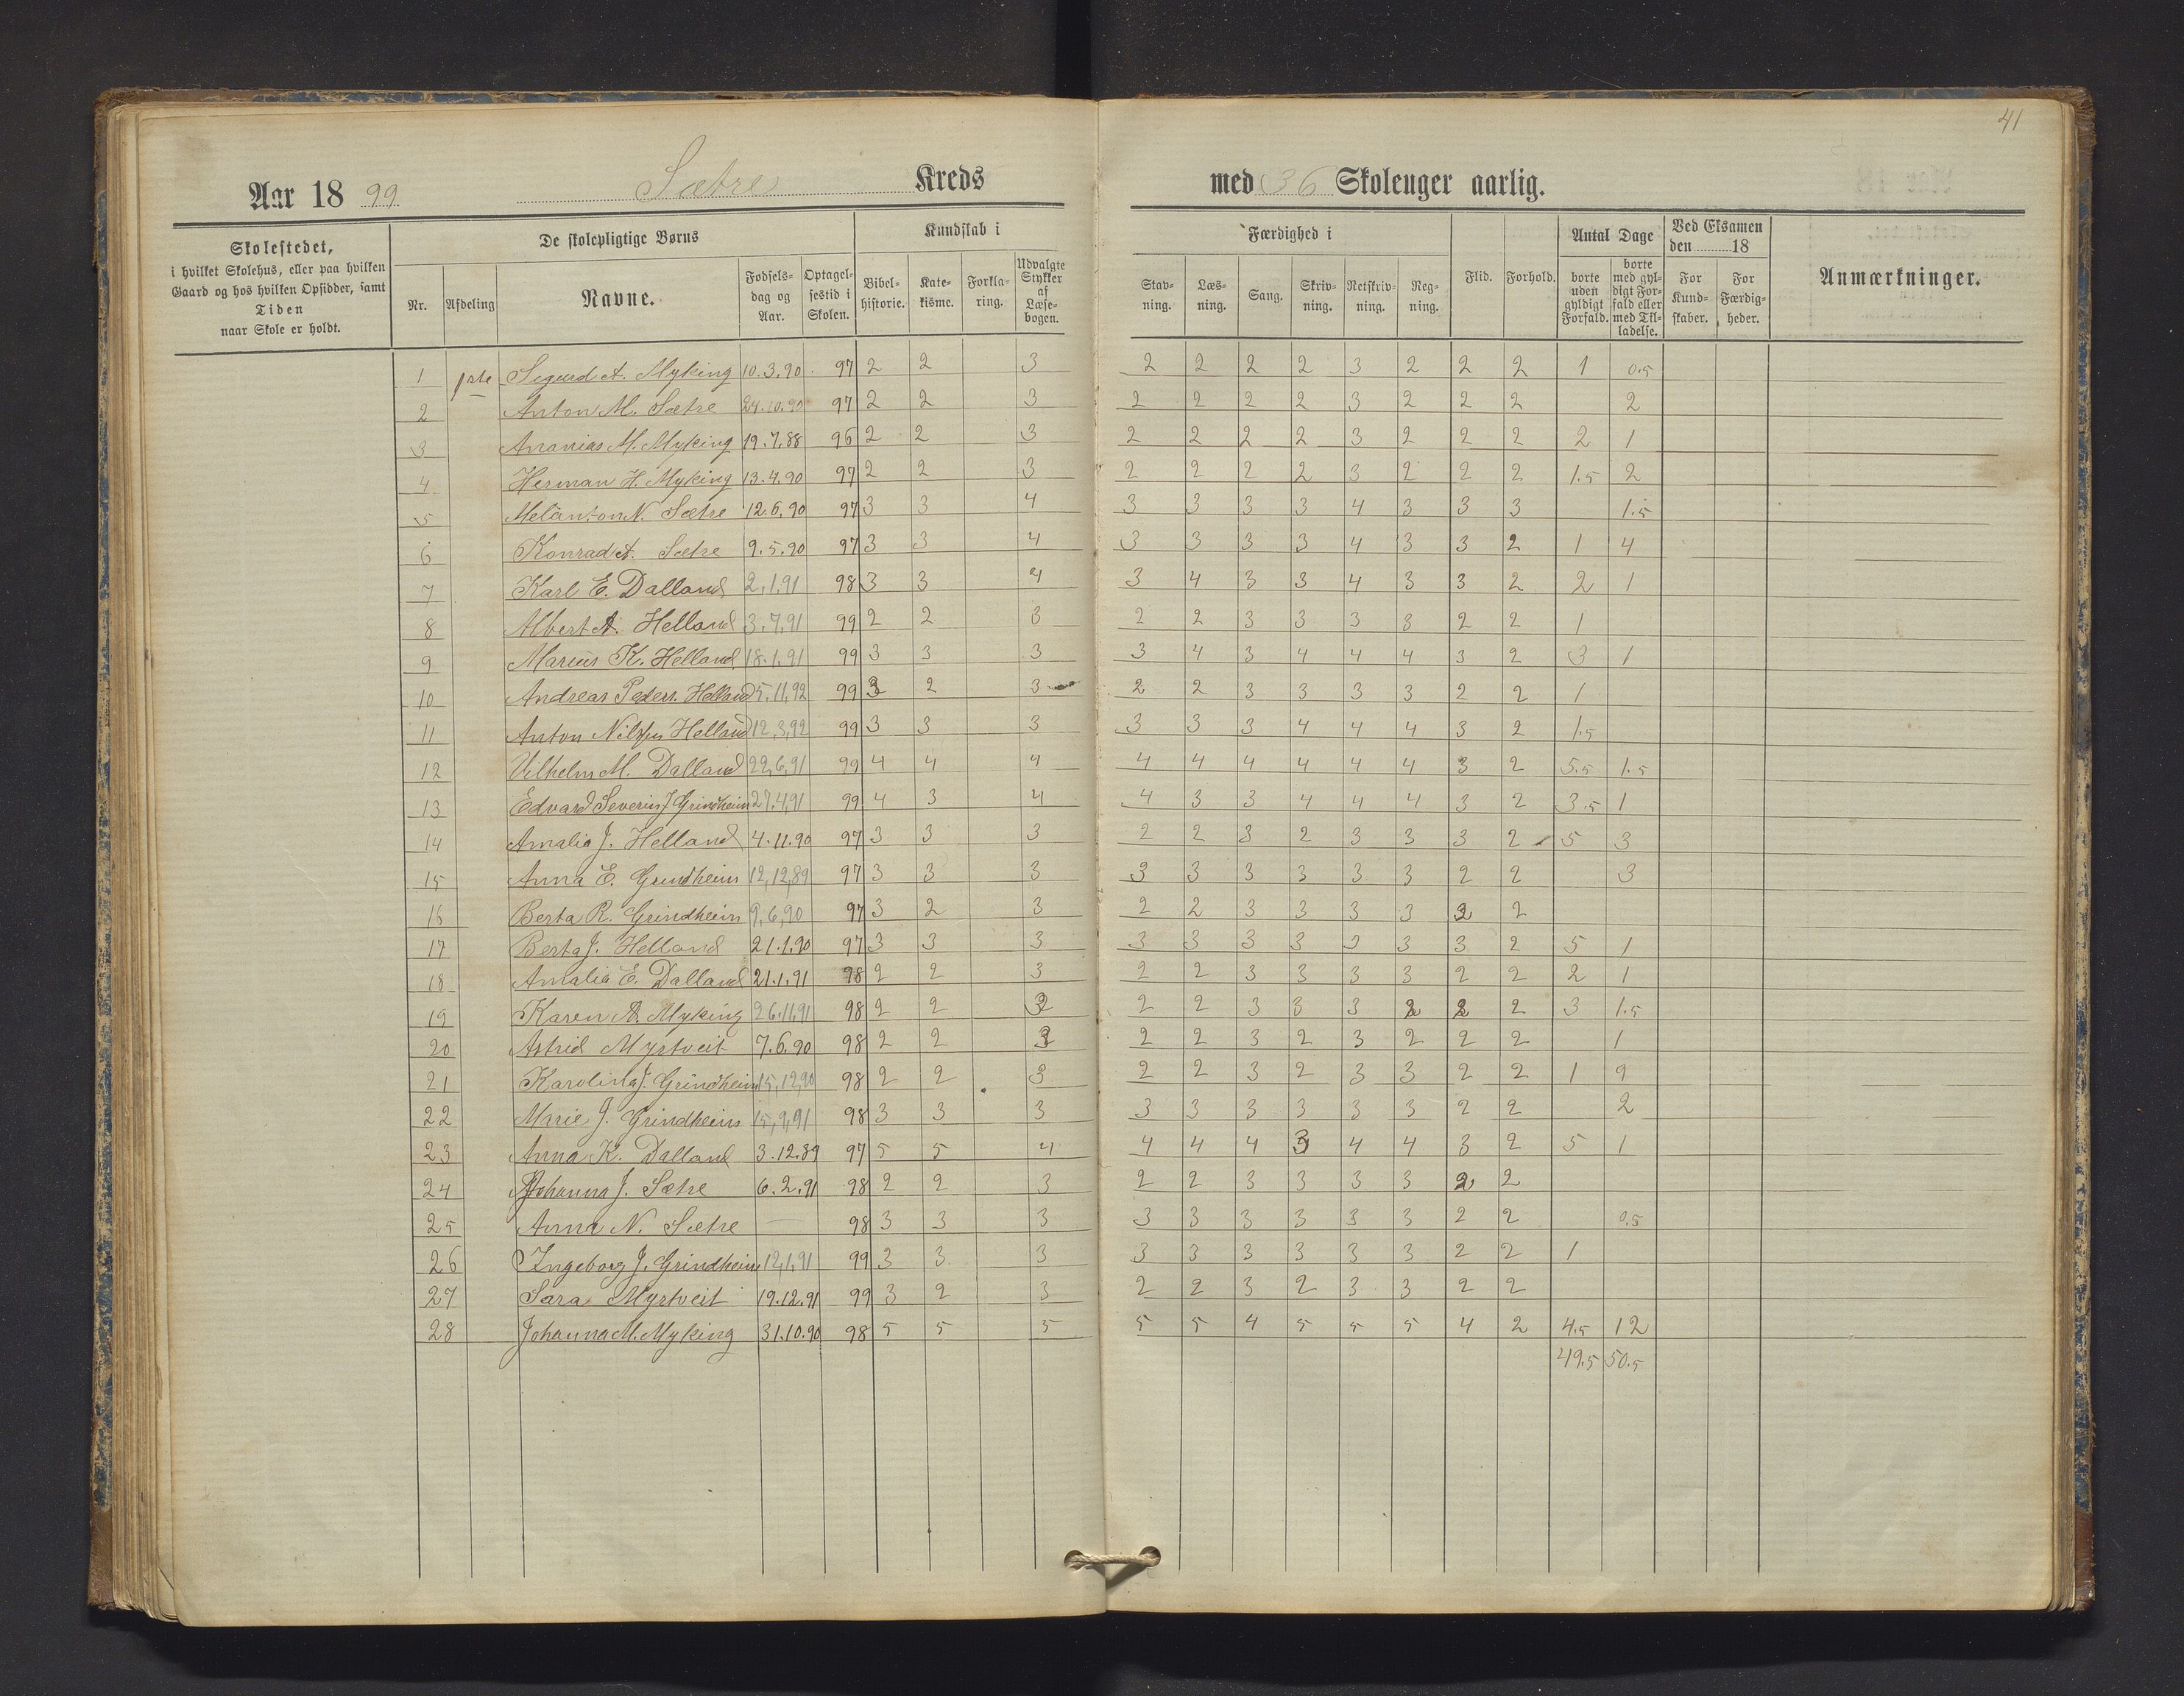 41
Aar 1899 Sætre Kreds med 36 Skoleuger aarlig.
Skolestedet, i hvilket Skolehus, eller paa hvilken Gaard og hos hvilken Opsidder, samt Tiden naar Skole er holdt.
De skolepligtige Børns
Nr. Afdeling Navne. Fødsels-dag og Aar. Optagel-sestid i Skolen.
Kundskab i
Bibel-historie. Kate-kisme. Forkla-ring. Udvalgte Stykker af Læse-bogen.
Færdighed i
Stav-ning. Læs-ning. Sang. Skriv-ning. Retskriv-ning. Reg-ning.
Flid. Forhold.
Antal Dage
borte uden gyldigt Forfald. borte med gyl-digt For-fald eller med Til-ladelse.
Ved Eksamen den 18
For Kund-skaber. For Færdig-heder.
Anmærkninger.
1 1ste Sigurd A. Myking 10.3.90 97 2 2 3 2 2 2 2 3 2 2 2 1 0.5
2 Anton M. Sætre 24.10.90 97 2 2 3 2 2 2 2 3 2 2 2 2
3 Ananias M. Myking 19.7.88 96 2 2 3 2 2 2 2 3 2 2 2 2 1
4 Herman H. Myking 13.4.90 97 2 2 3 2 2 2 2 3 2 2 2 1.5 2
5 Melanton N. Sætre 12.6.90 97 3 3 4 3 3 3 3 4 3 3 3 1.5
6 Konrad A. Sætre 9.5.90 97 3 3 4 3 3 3 3 4 3 3 2 1 4
7 Karl E. Dalland 2.1.91 98 3 3 4 3 4 3 3 4 3 3 2 2 1
8 Albert A. Helland 3.7.91 99 2 2 3 2 2 3 3 3 3 2 2 1
9 Marius K. Helland 18.1.91 99 3 3 3 3 4 3 4 4 4 3 2 3 1
10 Andreas Peders. Helland 5.11.92 99 3 2 3 2 2 3 3 3 3 2 2 1
11 Anton Nilsen Helland 12.3.92 99 3 3 3 3 3 3 4 4 4 3 2 1.5
12 Vilhelm M. Dalland 22.6.91 99 4 4 4 4 4 4 4 4 4 3 2 5.5 1.5
13 Edvard Severin J Grindheim 27.4.91 99 4 3 4 4 3 3 4 4 4 3 2 3.5 1
14 Amalia J. Helland 4.11.90 97 3 3 3 2 2 3 2 3 3 3 2 5 3
15 Anna E. Grindheim 12,12,89 97 3 3 3 3 3 3 3 3 3 2 2 3
16 Berta R. Grindheim 9,6,90 97 3 2 3 2 2 3 3 3 3 2 2
17 Berta J. Helland 21.1.90 97 3 3 3 3 3 3 3 3 3 3 2 5 1
18 Amalia E. Dalland 21.1.91 98 2 2 3 2 2 3 3 3 3 2 2 2 1
19 Karen A. Myking 26.11.91 98 2 2 3 2 2 3 3 3 2 2 2 3 1.5
20 Astrid Myrtveit 7.6.90 98 2 2 3 2 2 3 2 3 2 2 2 1
21 Karolina J. Grindheim 15,12,90 98 2 2 3 2 2 3 2 3 3 2 2 1 9
22 Marie J. Grindheim 15,9,91 98 3 3 3 3 3 3 3 3 3 2 2 2
23 Anna K. Dalland 3.12.89 97 5 5 4 4 4 4 3 4 4 3 2 5 1
24 Johanna J. Sætre 6.2.91 98 2 2 3 2 2 3 3 3 3 2 2
25 Anna N. Sætre — 98 3 3 3 3 3 3 3 3 3 2 2 0.5
26 Ingeborg J. Grindheim 12,1,91 99 3 3 3 3 3 3 3 3 3 2 2 1
27 Sara Myrtveit 19.12.91 99 3 2 3 2 2 3 2 3 3 2 2
28 Johanna M. Myking 31.10.90 98 5 5 5 5 5 4 5 5 5 4 2 4.5 12
49.5 50.5